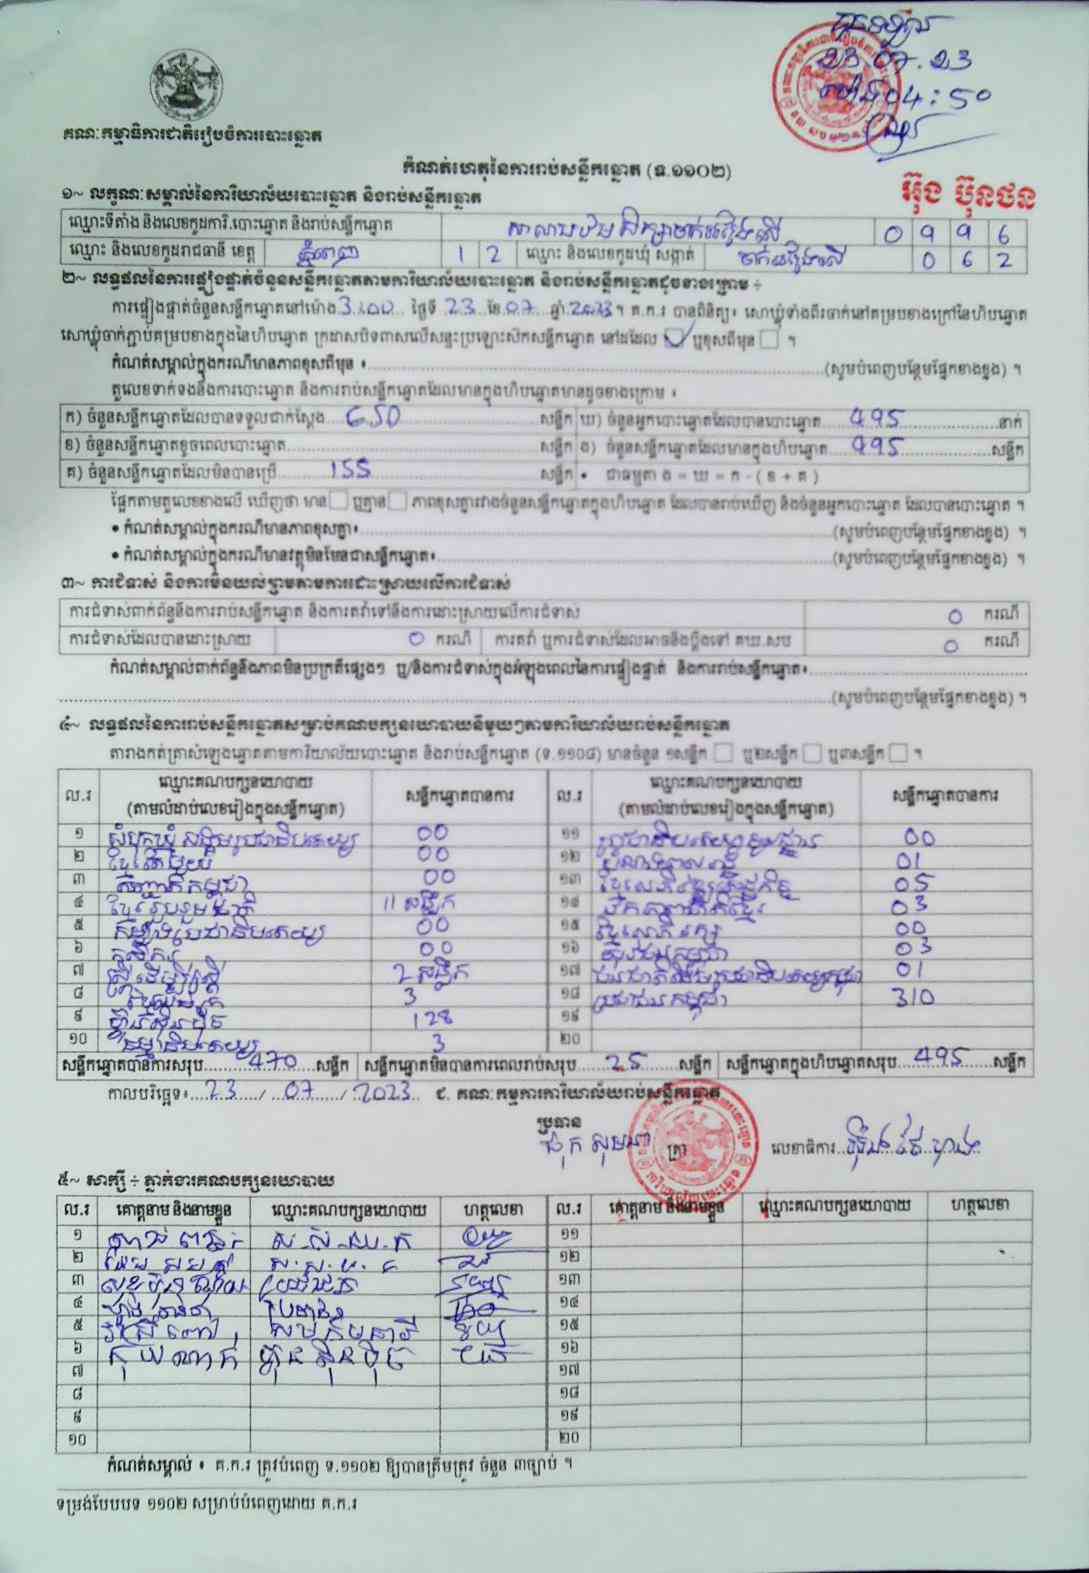 បានទទួល
23.07.23
ម៉ោង 04:50
គណៈកម្មាធិការជាតិរៀបចំការបោះឆ្នោត
កំណត់ហេតុនៃការរាប់សន្លឹកឆ្នោត (ទ.១១០២)
អ៊ុង ប៊ុនថន
១~ លក្ខណៈសម្គាល់នៃការិយាល័យបោះឆ្នោត និងរាប់សន្លឹកឆ្នោត
ឈ្មោះទីតាំង និងលេខកូដការិ.បោះឆ្នោត និងរាប់សន្លឹកឆ្នោត 0 9 9 6
ឈ្មោះ និងលេខកូដរាជធានី ខេត្ត ភ្នំពេញ 1 2 ឈ្មោះ និងលេខកូដឃុំ សង្កាត់ ចាក់អង្រែលើ 0 6 2
២~ លទ្ធផលនៃការផ្ទៀងផ្ទាត់ចំនួនសន្លឹកឆ្នោតតាមការិយាល័យបោះឆ្នោត និងរាប់សន្លឹកឆ្នោតដូចខាងក្រោម ÷
ការផ្ទៀងផ្ទាត់ចំនួនសន្លឹកឆ្នោតនៅម៉ោង 3:00 ថ្ងៃទី 23 ខែ 07 ឆ្នាំ 2023 ។ គ.ក.រ បានពិនិត្យ៖ សោឃ្លុំទាំងពីរចាក់នៅគម្របខាងក្រៅនៃហិបឆ្នោត
សោឃ្លុំចាក់ភ្ជាប់គម្របខាងក្នុងនៃហិបឆ្នោត ក្រដាសបិទពាសលើសន្ទះប្រឡោះសិកសន្លឹកឆ្នោត នៅដដែល ☑ ឬខុសពីមុន ☐ ។
កំណត់សម្គាល់ក្នុងករណីមានភាពខុសពីមុន ៖ (សូមបំពេញបន្ថែមផ្នែកខាងខ្នង) ។
តួលេខទាក់ទងនឹងការបោះឆ្នោត និងការរាប់សន្លឹកឆ្នោតដែលមានក្នុងហិបឆ្នោតមានដូចខាងក្រោម ៖
ក) ចំនួនសន្លឹកឆ្នោតដែលបានទទួលជាក់ស្តែង 650 សន្លឹក ឃ) ចំនួនអ្នកបោះឆ្នោតដែលបានបោះឆ្នោត 495 នាក់
ខ) ចំនួនសន្លឹកឆ្នោតខូចពេលបោះឆ្នោត សន្លឹក ង) ចំនួនសន្លឹកឆ្នោតដែលមានក្នុងហិបឆ្នោត 495 សន្លឹក
គ) ចំនួនសន្លឹកឆ្នោតដែលមិនបានប្រើ 155 សន្លឹក • ជាធម្មតា ង = ឃ = ក - ( ខ + គ )
ផ្អែកតាមតួលេខខាងលើ ឃើញថា មាន ☐ ឬគ្មាន ☐ ភាពខុសគ្នារវាងចំនួនសន្លឹកឆ្នោតក្នុងហិបឆ្នោត ដែលបានរាប់ឃើញ និងចំនួនអ្នកបោះឆ្នោត ដែលបានបោះឆ្នោត ។
• កំណត់សម្គាល់ក្នុងករណីមានភាពខុសគ្នា៖ (សូមបំពេញបន្ថែមផ្នែកខាងខ្នង) ។
• កំណត់សម្គាល់ក្នុងករណីមានវត្ថុមិនមែនជាសន្លឹកឆ្នោត៖ (សូមបំពេញបន្ថែមផ្នែកខាងខ្នង) ។
៣~ ការជំទាស់ និងការមិនយល់ព្រមតាមការដោះស្រាយលើការជំទាស់
ការជំទាស់ពាក់ព័ន្ធនឹងការរាប់សន្លឹកឆ្នោត និងការតវ៉ាទៅនឹងការដោះស្រាយលើការជំទាស់ 0 ករណី
ការជំទាស់ដែលបានដោះស្រាយ 0 ករណី ការតវ៉ា ឬការជំទាស់ដែលអាចនឹងប្តឹងទៅ គឃ.សប 0 ករណី
កំណត់សម្គាល់ពាក់ព័ន្ធនឹងភាពមិនប្រក្រតីផ្សេងៗ ឬ/និងការជំទាស់ក្នុងអំឡុងពេលនៃការផ្ទៀងផ្ទាត់ និងការរាប់សន្លឹកឆ្នោត៖
(សូមបំពេញបន្ថែមផ្នែកខាងខ្នង) ។
៤~ លទ្ធផលនៃការរាប់សន្លឹកឆ្នោតសម្រាប់គណបក្សនយោបាយនីមួយៗតាមការិយាល័យរាប់សន្លឹកឆ្នោត
តារាងកត់ត្រាសំឡេងឆ្នោតតាមការិយាល័យបោះឆ្នោត និងរាប់សន្លឹកឆ្នោត (ទ.១១០៨) មានចំនួន ១សន្លឹក ☐ ឬ២សន្លឹក ☐ ឬ៣សន្លឹក ☐ ។
ល.រ ឈ្មោះគណបក្សនយោបាយ (តាមលំដាប់លេខរៀងក្នុងសន្លឹកឆ្នោត) សន្លឹកឆ្នោតបានការ ល.រ ឈ្មោះគណបក្សនយោបាយ (តាមលំដាប់លេខរៀងក្នុងសន្លឹកឆ្នោត) សន្លឹកឆ្នោតបានការ
១ សំបុកឃ្មុំសង្គមប្រជាធិបតេយ្យ 00 ១១ ប្រជាធិបតេយ្យមូលដ្ឋាន 00
២ ខ្មែរតែមួយ 00 ១២ 01
៣ 00 ១៣ ខ្មែរអភិវឌ្ឍន៍សេដ្ឋកិច្ច 05
៤ ខ្មែររួបរួមជាតិ 11 សន្លឹក ១៤ ឯកភាពជាតិខ្មែរ 03
៥ កម្លាំងប្រជាធិបតេយ្យ 00 ១៥ ខ្មែរអភិរក្ស 00
៦ កសិករ 00 ១៦ 03
៧ ស្ត្រីដើម្បីស្ត្រី 2 សន្លឹក ១៧ 01
៨ 3 ១៨ ប្រជាជនកម្ពុជា 310
៩ ហ្វ៊ុនស៊ិនប៉ិច 128 ១៩
១០ ធម្មាធិបតេយ្យ 3 ២០
សន្លឹកឆ្នោតបានការសរុប 470 សន្លឹក សន្លឹកឆ្នោតមិនបានការពេលរាប់សរុប 25 សន្លឹក សន្លឹកឆ្នោតក្នុងហិបឆ្នោតសរុប 495 សន្លឹក
កាលបរិច្ឆេទ៖ 23 / 07 / 2023 ជ. គណៈកម្មការការិយាល័យរាប់សន្លឹកឆ្នោត
ប្រធាន
ត្រា លេខាធិការ
៥~ សាក្សី ÷ ភ្នាក់ងារគណបក្សនយោបាយ
ល.រ គោត្តនាម និងនាមខ្លួន ឈ្មោះគណបក្សនយោបាយ ហត្ថលេខា ល.រ គោត្តនាម និងនាមខ្លួន ឈ្មោះគណបក្សនយោបាយ ហត្ថលេខា
១ ១១
២ ១២
៣ ១៣
៤ ១៤
៥ ១៥
៦ ហ្វ៊ុនស៊ិនប៉ិច ១៦
៧ ១៧
៨ ១៨
៩ ១៩
១០ ២០
កំណត់សម្គាល់ ៖ គ.ក.រ ត្រូវបំពេញ ទ.១១០២ ឱ្យបានត្រឹមត្រូវ ចំនួន ៣ច្បាប់ ។
ទម្រង់បែបបទ ១១០២ សម្រាប់បំពេញដោយ គ.ក.រ